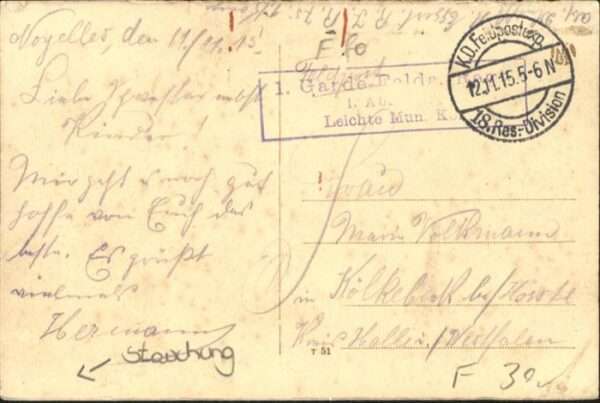 Noyelles, den 11/11. 15
Liebe Schwester nebst
Kinder!
Mir geht es noch gut
hoffe von Euch das
beste. Es grüßt
vielmals
Hermann
Stauchung
F 60
Feldpost
1. Garde-Felda.
I. Ab.
Leichte Mun. K
K.D. Feldpostexp.
12.11.15. 5-6 N
18. Res.-Division
Frau
Marie Volkmann
in Kölkebeck bei
Kreis Halle i/Westfalen
T 51
F 30